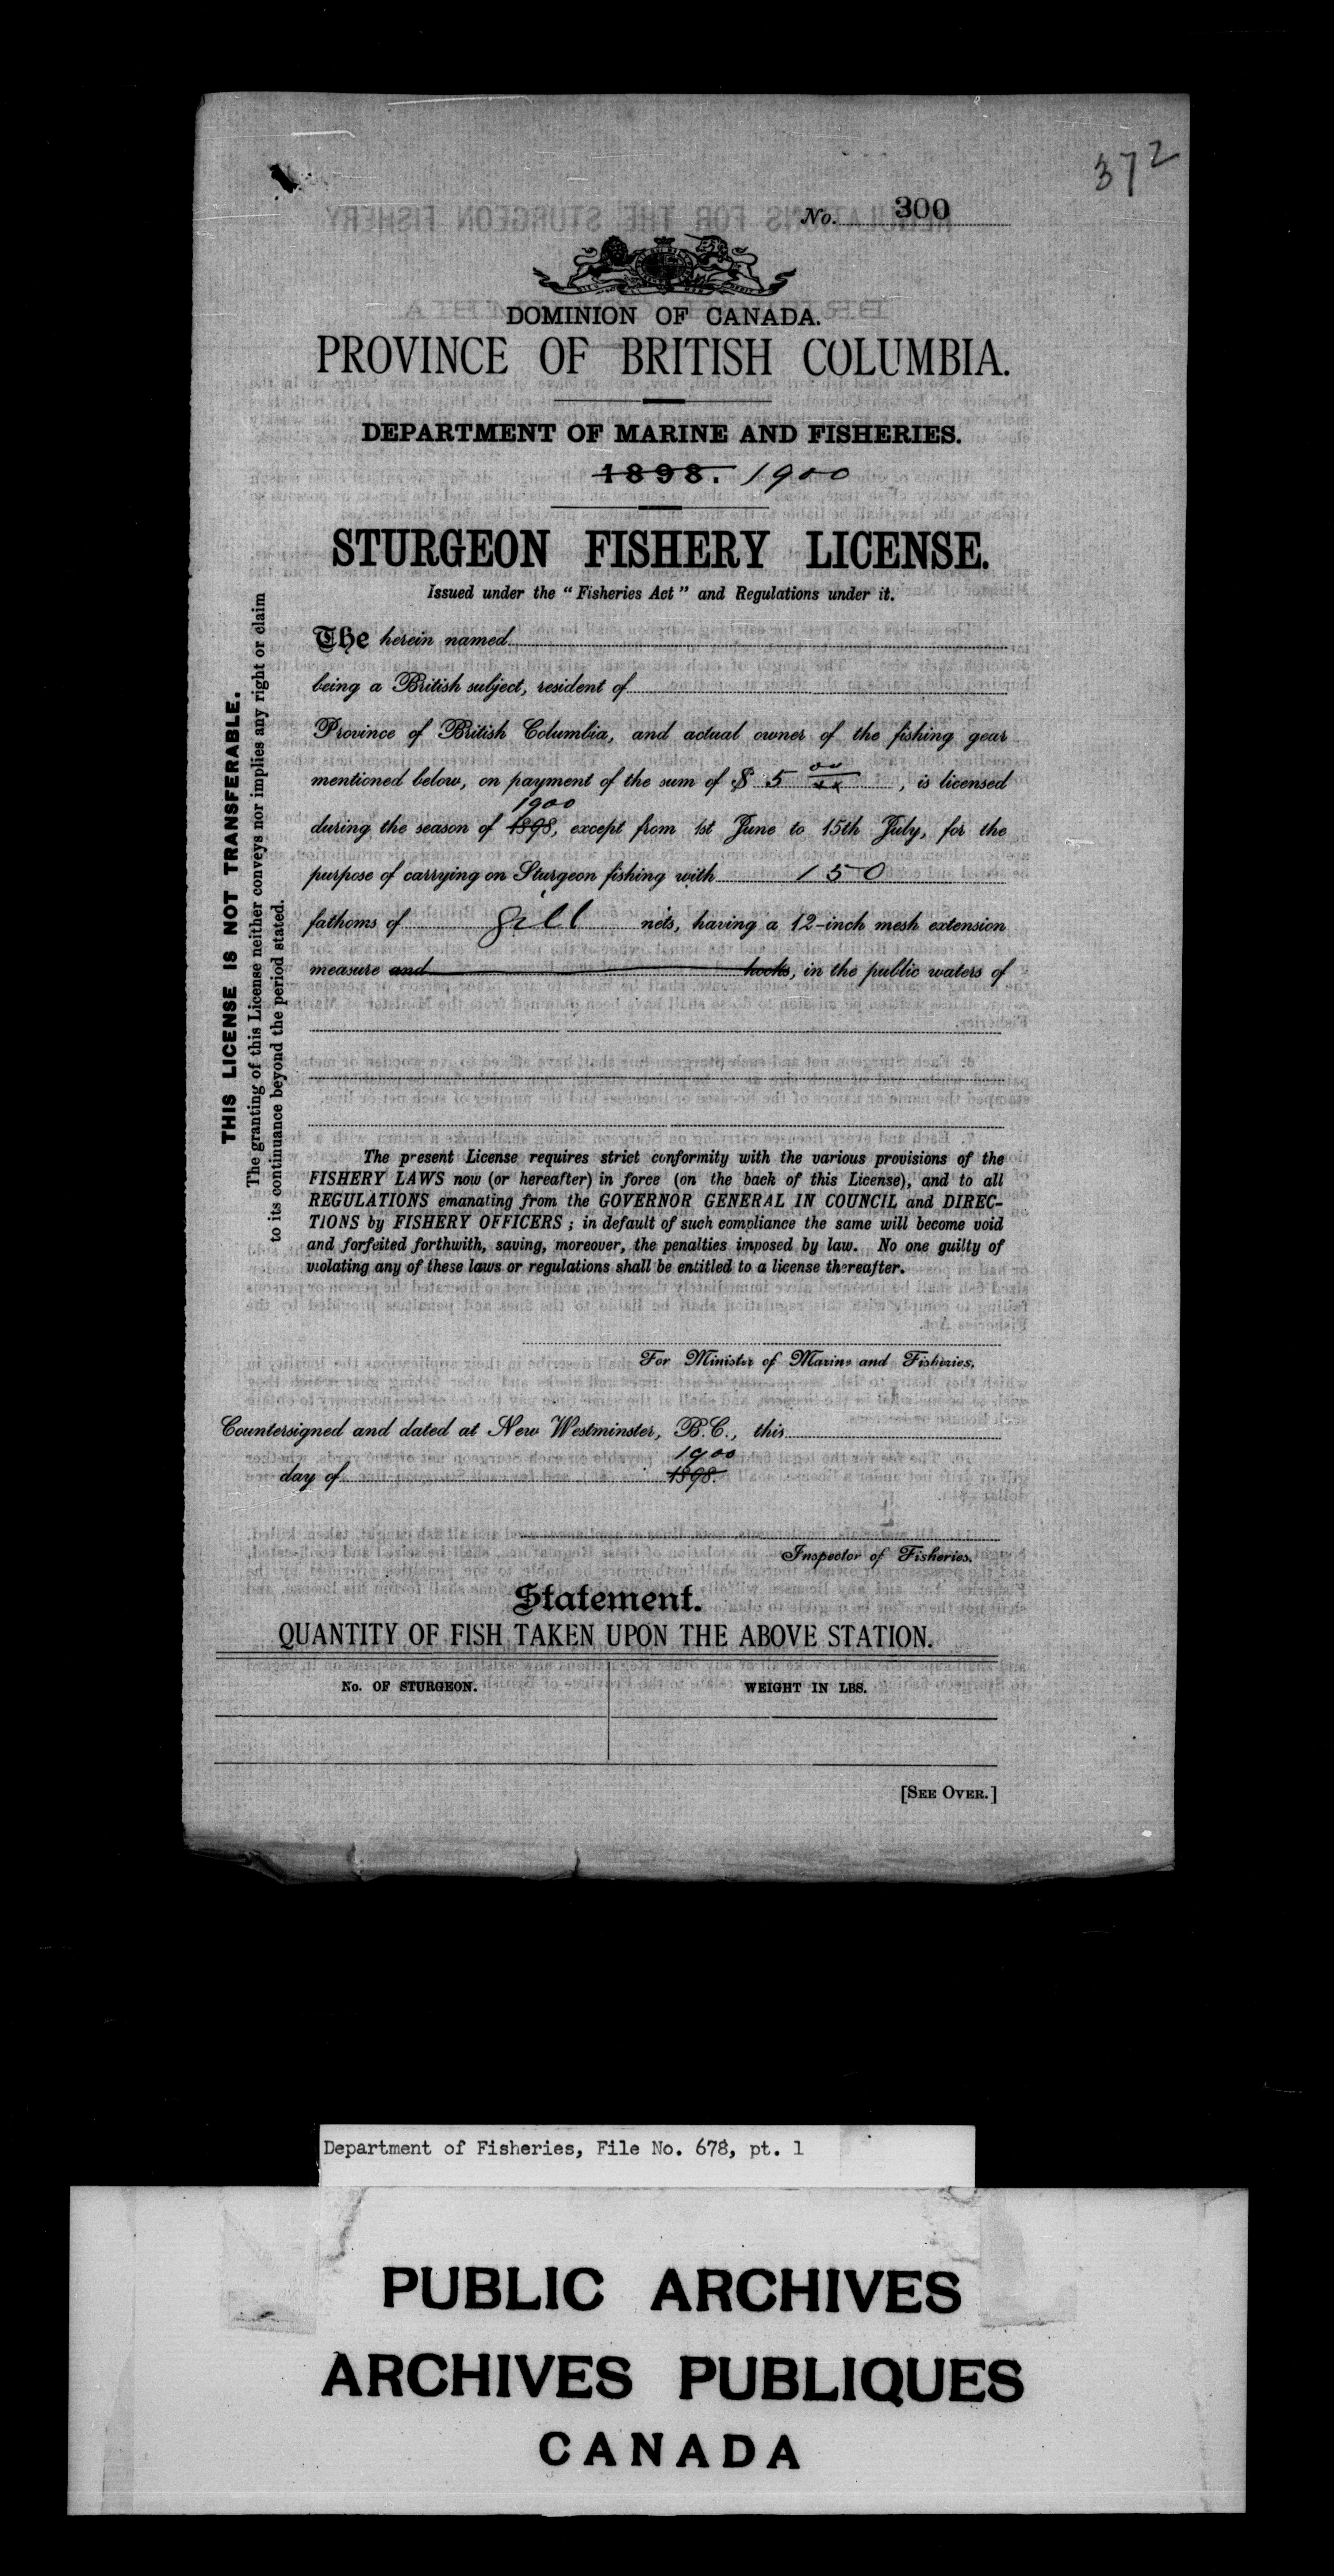 372
No. 300
DOMINION OF CANADA.
PROVINCE OF BRITISH COLUMBIA.
DEPARTMENT OF MARINE AND FISHERIES.
1898. 1900
STURGEON FISHERY LICENSE.
Issued under the “Fisheries Act” and Regulations under it.
The herein named
being a British subject, resident of
Province of British Columbia, and actual owner of the fishing gear
mentioned below, on payment of the sum of $ 5 00/xx, is licensed
1900
during the season of 1898, except from 1st June to 15th July, for the
purpose of carrying on Sturgeon fishing with 150
fathoms of gill nets, having a 12-inch mesh extension
measure and hooks, in the public waters of
The present License requires strict conformity with the various provisions of the
FISHERY LAWS now (or hereafter) in force (on the back of this License), and to all
REGULATIONS emanating from the GOVERNOR GENERAL IN COUNCIL and DIREC-
TIONS by FISHERY OFFICERS ; in default of such compliance the same will become void
and forfeited forthwith, saving, moreover, the penalties imposed by law. No one guilty of
violating any of these laws or regulations shall be entitled to a license thereafter.
For Minister of Marine and Fisheries.
Countersigned and dated at New Westminster, B.C., this
1900
day of 1898.
Inspector of Fisheries.
Statement.
QUANTITY OF FISH TAKEN UPON THE ABOVE STATION.
No. OF STURGEON. WEIGHT IN LBS.
[SEE OVER.]
THIS LICENSE IS NOT TRANSFERABLE.
The granting of this License neither conveys nor implies any right or claim
to its continuance beyond the period stated.
Department of Fisheries, File No. 678, pt. 1
PUBLIC ARCHIVES
ARCHIVES PUBLIQUES
CANADA